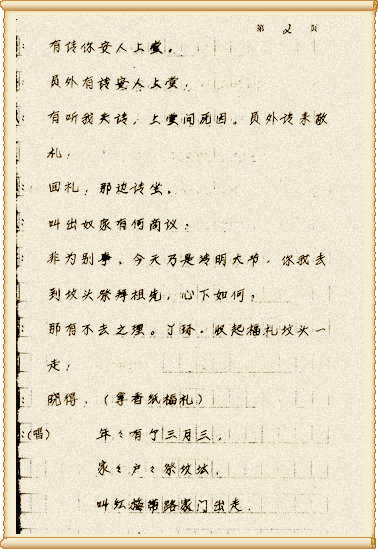 第 2 页
: 有请你安人上堂。
: 员外有请安人上堂.
: 有听我夫请，上堂问死因。员外该来敬
礼；
: 回礼，那边请坐。
: 叫出奴家有何商议;
: 非为别事、今天乃是清明大节，你我去
到坟头祭拜祖先，心下如何；
: 那有不去之理。丫环，收起福礼坟头一
走;
: 晓得，（拿香纸福礼）
:(唱) 年々有个三月三,
家々户々祭坟坛,
叫红梅带路家门出走.